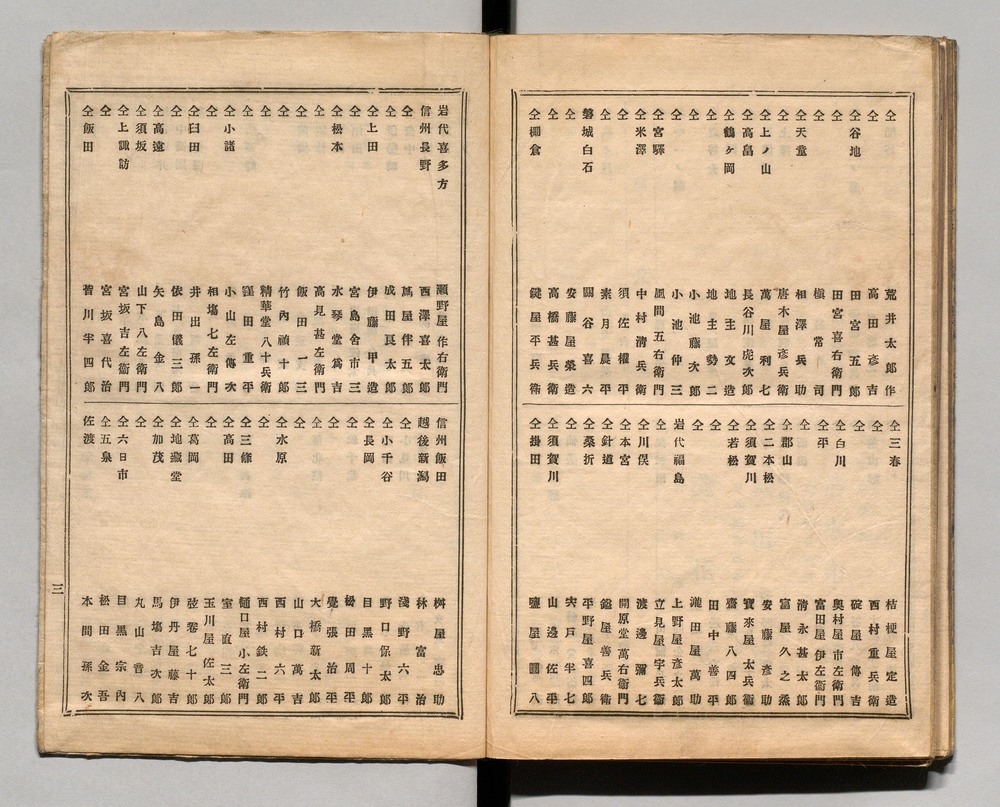 仝
荒井太郎作
仝
高田彦吉
仝谷地
田宮五郎
仝
田宮喜右衛門
仝
槇常司
仝天童
相澤兵助
仝
唐木屋彦兵衛
仝上ノ山
萬屋利七
仝高畠
長谷川虎次郎
仝鶴ヶ岡
地主文造
仝
地主勢二
仝
小池次郎
仝
小池仲三
仝宮驛
風間五右衛門
仝米澤
中村清兵衛
仝
須佐權平
仝
素月晨平
磐城白石
關谷喜六
仝
安藤屋榮造
仝
高橋甚兵衛
仝棚倉
鍵屋平兵衛
仝三春
桔梗屋定造
仝
西村重兵衛
仝
碇屋傳吉
仝白川
奥村屋市左衛門
仝平
富田屋伊左衛門
仝
清永甚太郎
仝郡山
富屋久之烝
仝二本松
安藤彦助
仝須賀川
寶來屋太兵衛
仝若松
齋藤八四郎
仝
田中善平
仝
瀧田屋萬助
岩代福島
上野屋彦太郎
仝
立見屋宇兵衛
仝川俣
渡邊彌七
仝本宮
開原堂萬右衛門
仝針道
鎰屋善兵衛
仝桑折
平野屋喜四郎
仝
宍戸半七
仝須賀川
山邊佐平
仝掛田
鹽屋圓八
岩代喜多方
瀬野屋作右衛門
信州長野
西澤喜太郎
仝
蔦屋伴五郎
仝
成田良太郎
仝上田
伊藤甲造
仝
宮島舍市三
仝松本
水琴堂爲吉
仝
高見甚左衛門
仝
飯田一三
仝
竹内禎十郎
仝
精華堂八十兵衛
仝
窪田重平
仝小諸
小山左傳次
仝
相塲七左衛門
仝臼田
井出孫一
仝
依田儀三郎
仝高遠
矢島金八
仝須坂
山下八左衛門
仝上諏訪
宮坂吉左衛門
仝
宮坂喜代治
仝飯田
皆川半四郎
信州飯田
桝屋忠助
越後新潟
林富治
仝
淺野六平
仝小千谷
野口保太郎
仝長岡
目黒十郎
仝
松田周平
仝
覺張治平
仝
大橋新太郎
仝
山口萬吉
仝水原
西村六平
仝
西村鉄二郎
仝三條
樋口屋小左衛門
仝高田
室直三郎
仝
玉川屋佐太郎
仝葛岡
弦卷七十郎
仝地藏堂
伊丹屋藤吉
仝加茂
馬塲吉次郎
仝
丸山音八
仝六日市
目黒宗内
仝五泉
松田金吾
佐渡
本間孫次
三